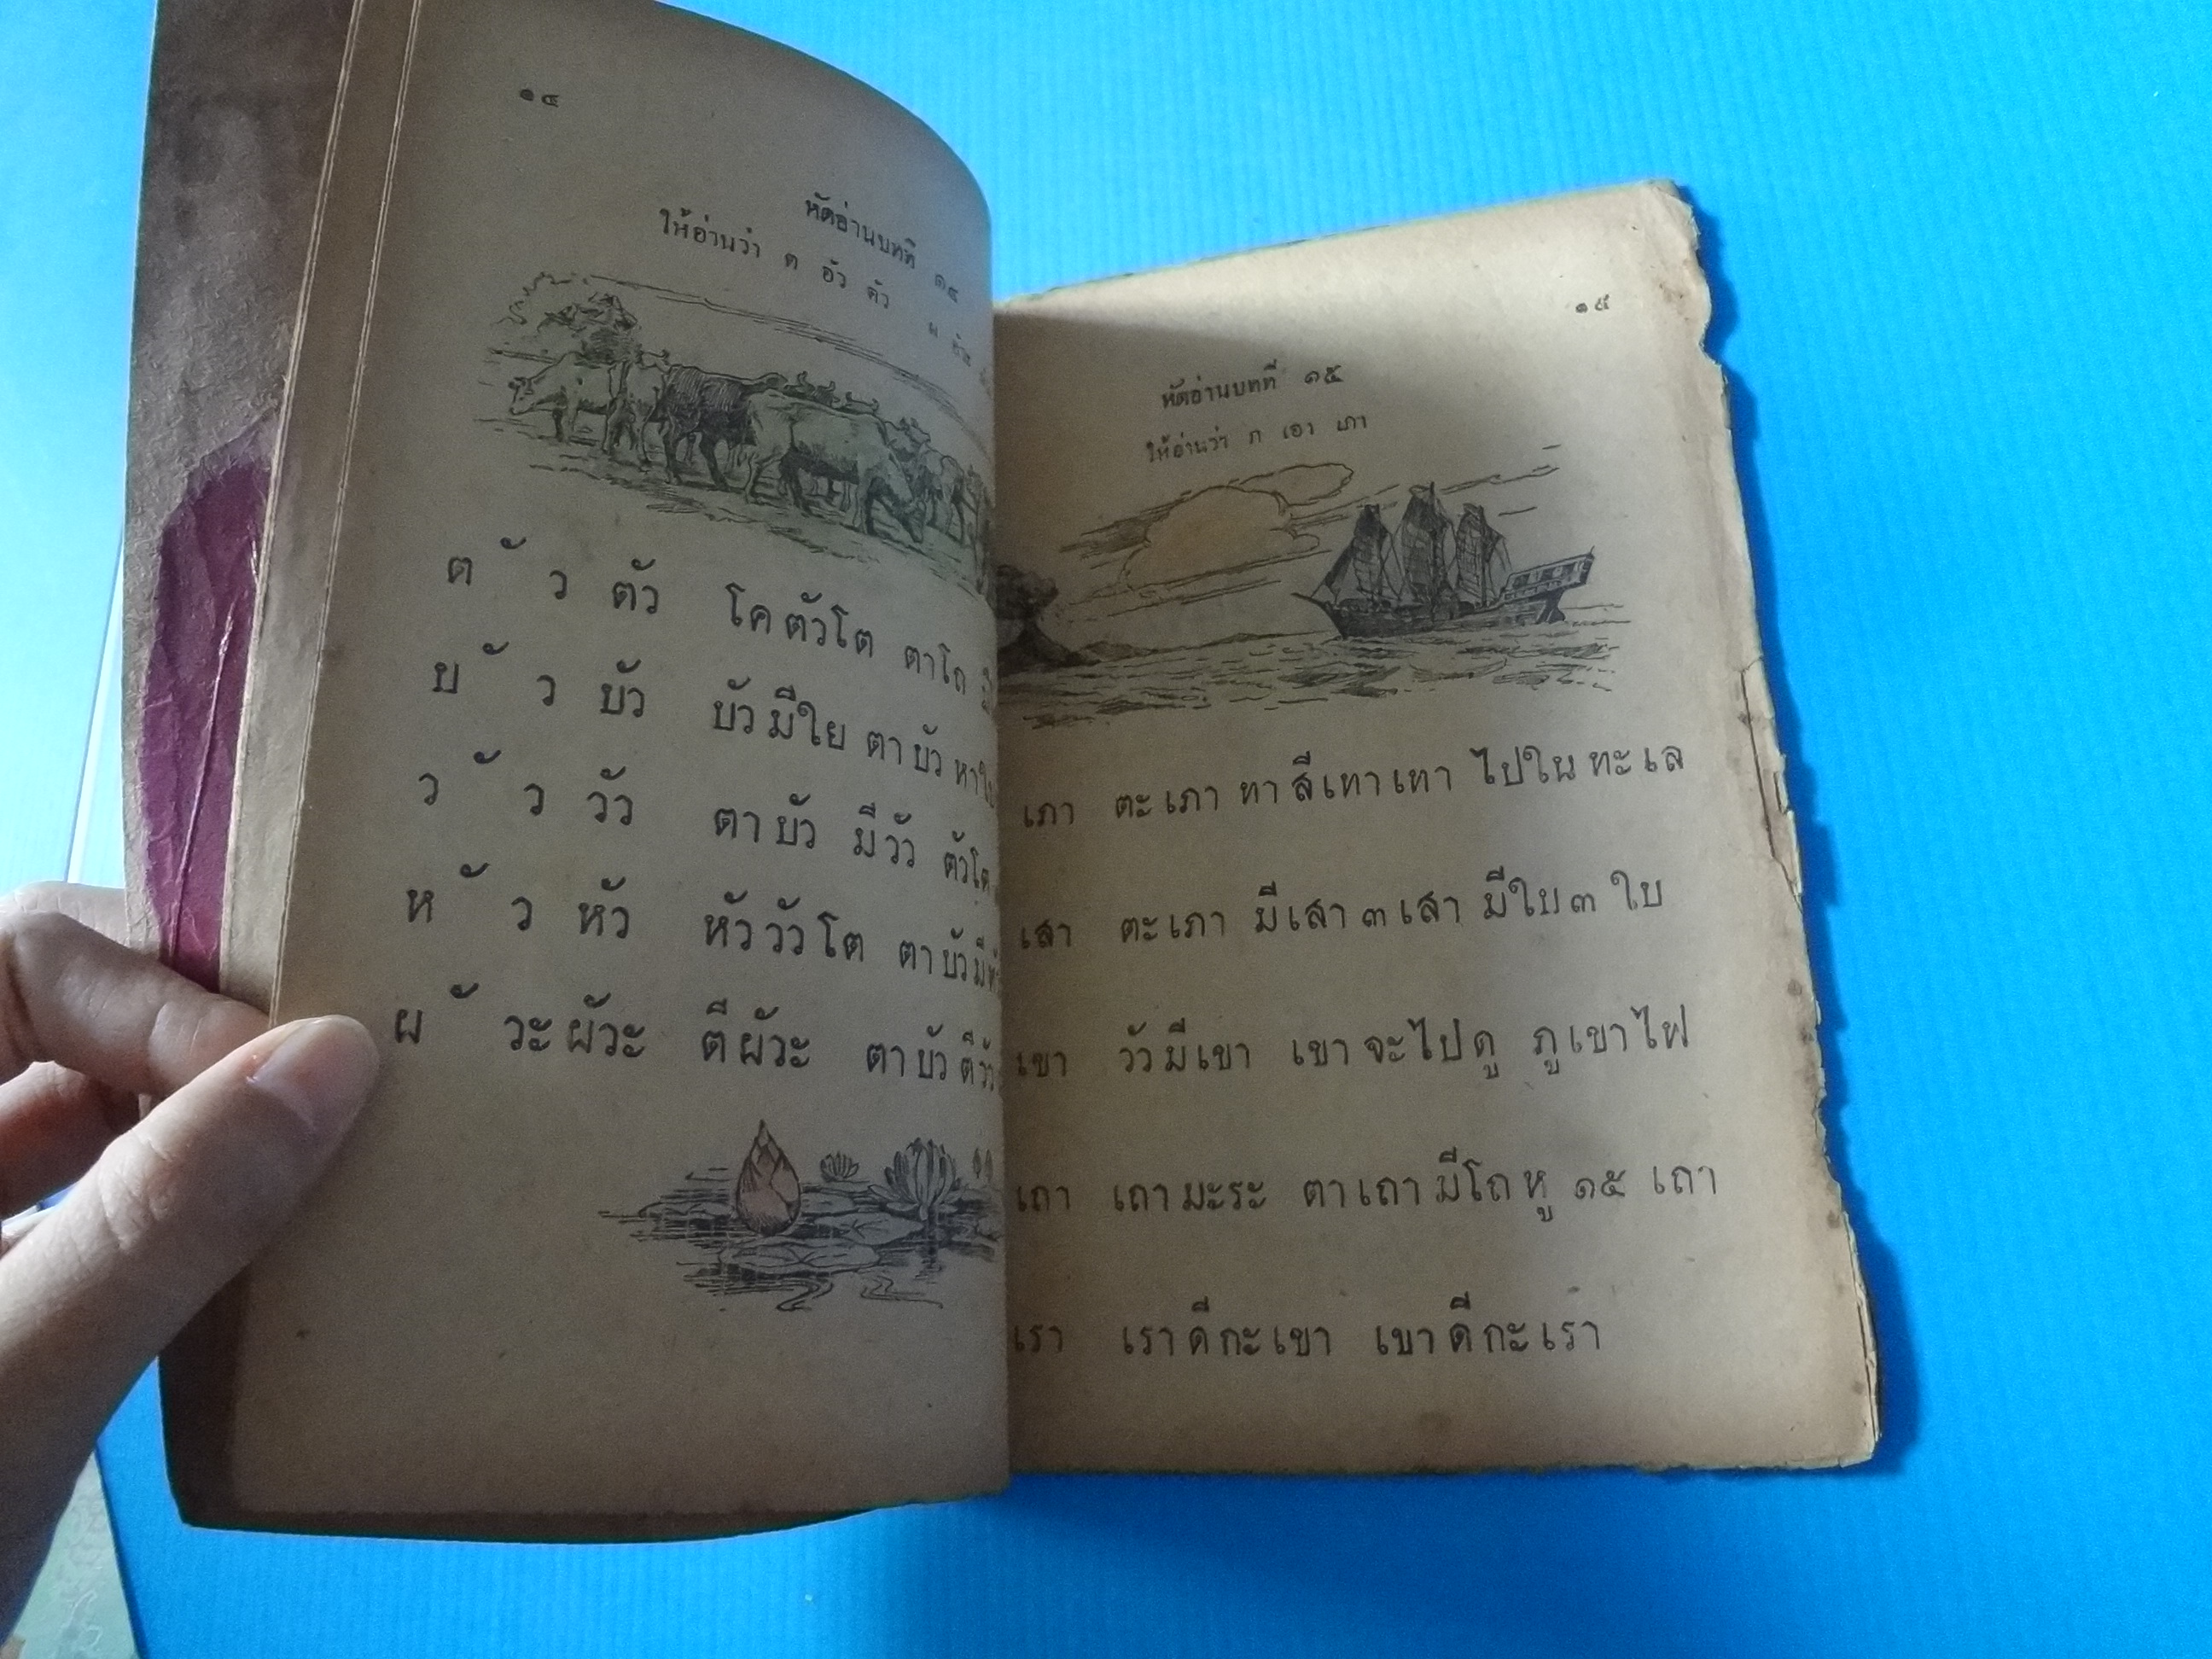 ๑๔
หัดอ่านบทที่ ๑๔
ให้อ่านว่า ต อัว ตัว ผ
ต ั ว ตัว โคตัวโต ตาโถ
บ ั ว บัว บัวมีใย ตาบัว หา
ว ั ว วัว ตาบัว มีวัว ตัวโต
ห ั ว หัว หัววัวโต ตาบัวมี
ผ ั วะ ผัวะ ตีผัวะ ตาบัวตีวัว
๑๕
หัดอ่านบทที่ ๑๕
ให้อ่านว่า ภ เอา เภา
เภา ตะเภาทาสีเทาเทา ไปในทะเล
เสา ตะเภา มีเสา ๓ เสา มีใบ ๓ ใบ
เขา วัวมีเขา เขาจะไปดู ภูเขาไฟ
เถา เถามะระ ตาเถามีโถหู ๑๕ เถา
เรา เราดีกะเขา เขาดีกะเรา